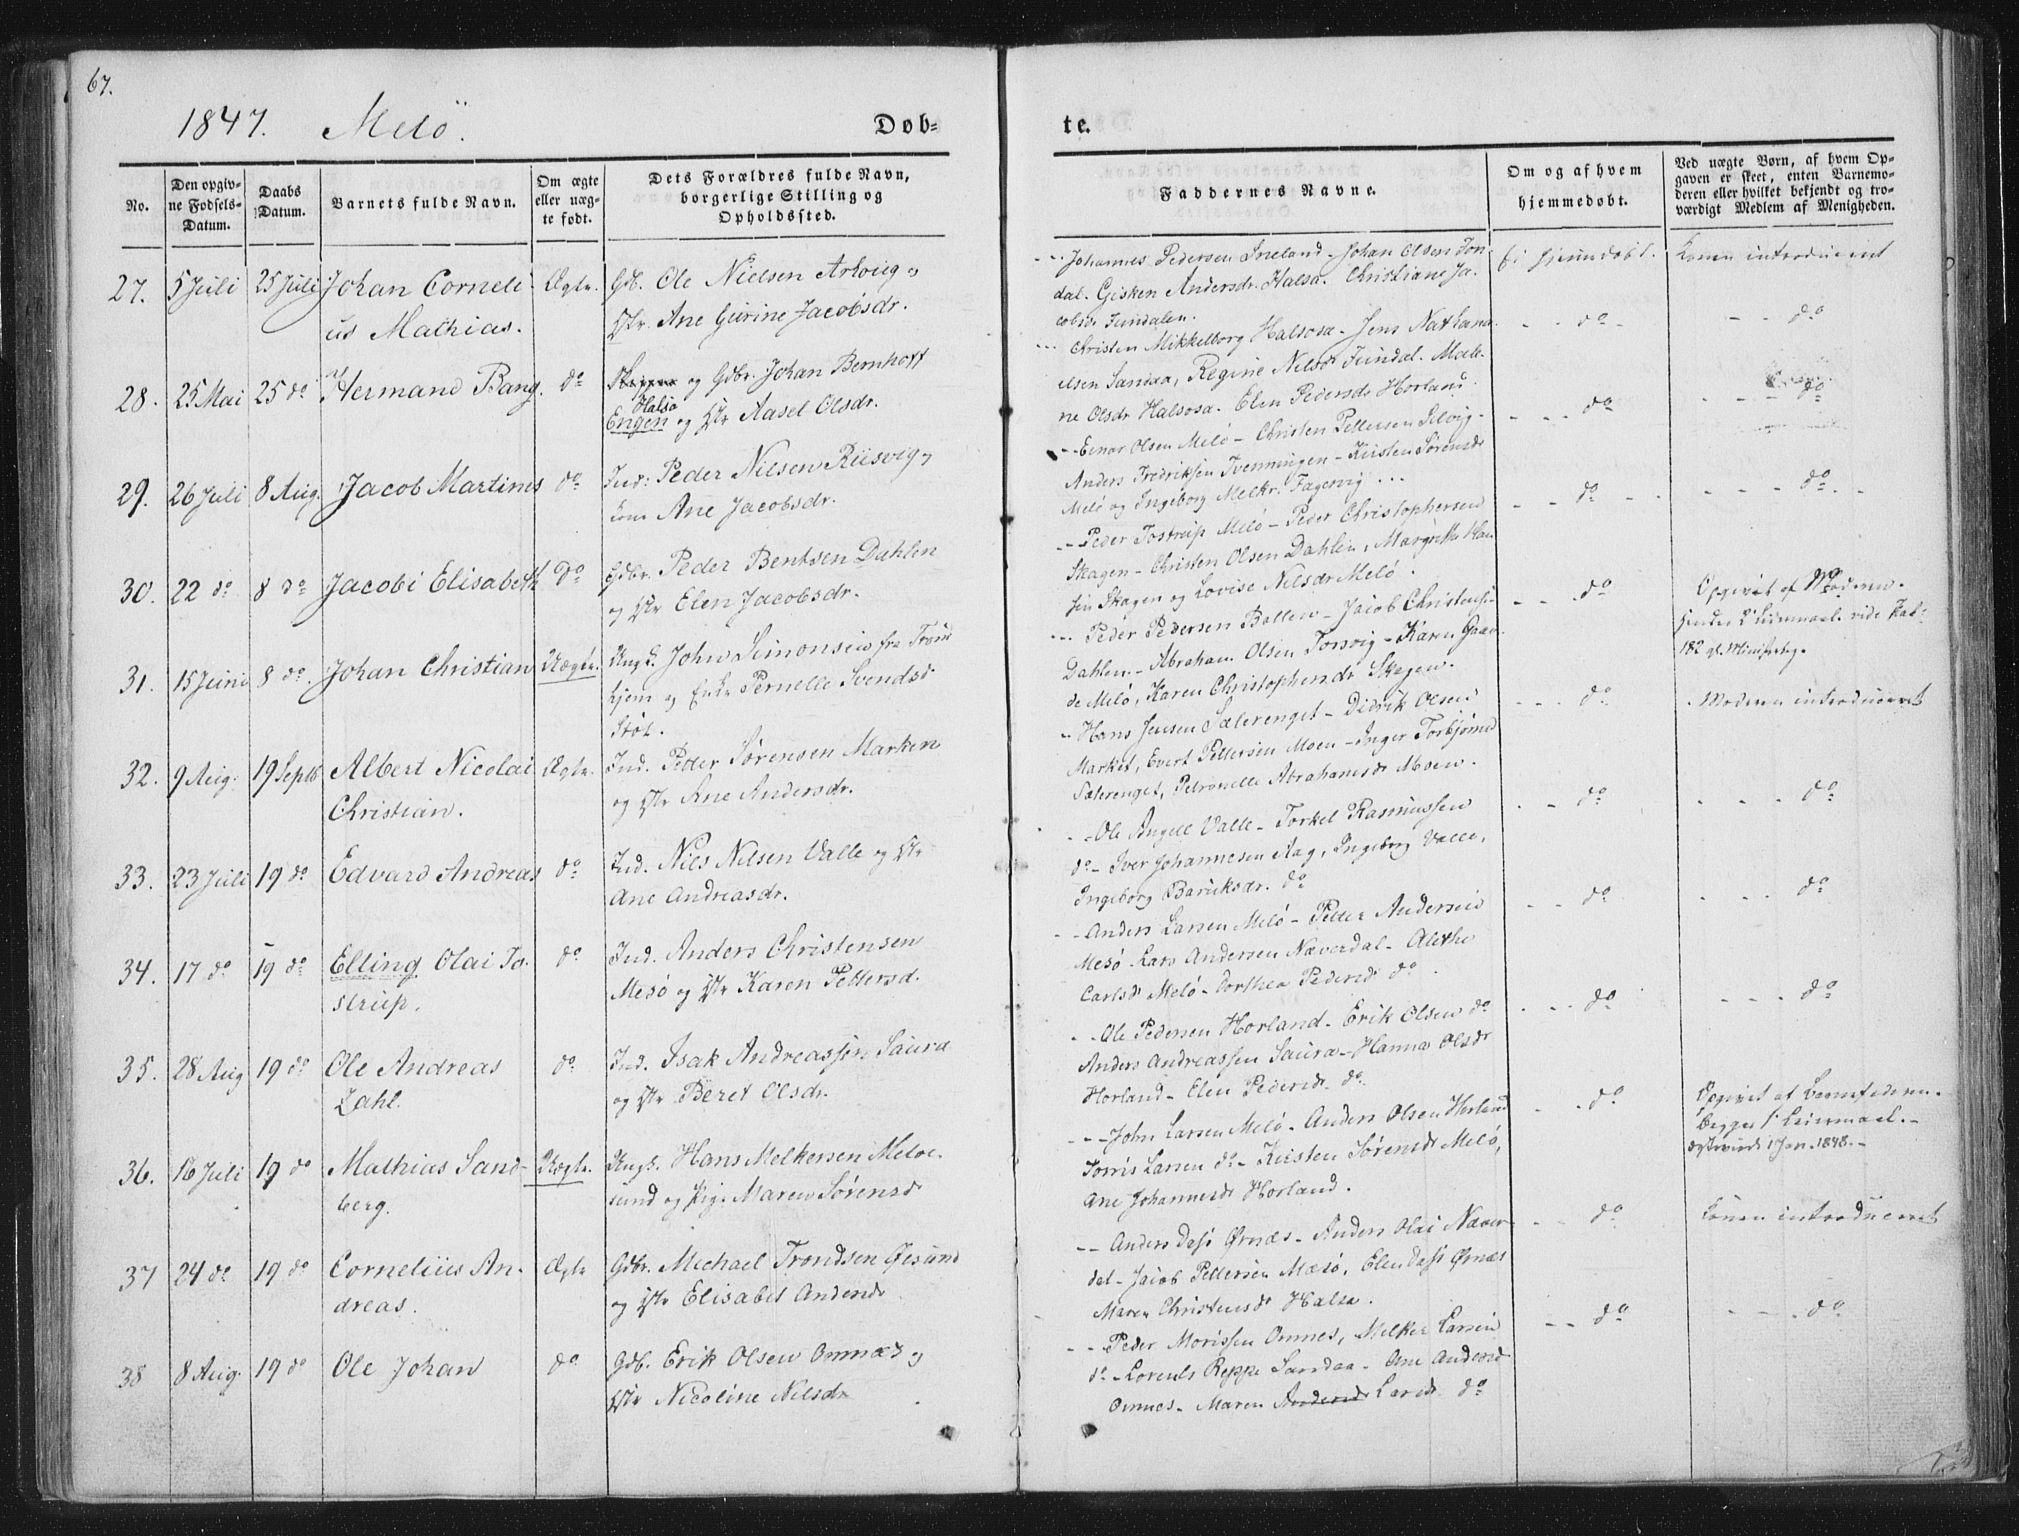 67.
1847. Melö.
Døb-
te.
No.
Den opgiv-
ne Fødsels-
Datum.
Daabs
Datum.
Barnets fulde Navn.
Om ægte
eller uæg-
te født.
Dets Forældres fulde Navn,
borgerlige Stilling og
Opholdssted.
Faddernes Navne.
Om og af hvem
hjemmedøbt.
Ved uægte Børn, af hvem Op-
gaven er skeet, enten Barnemo-
deren eller hvilket bekjendt og tro-
værdigt Medlem af Menigheden.
27. 5 Juli 25 Juli Johan Corneli- Ægte. Gb. Ole Nielsen
us Mathias. Hr. Ane Gurine Jacobsdr.
Johannes Pedersen - Johan Olsen Fon-
dal. Gisken Andersdr. Halsa. Christiane Ja-
cobsdr Fondalen.
Konen introduceret
28. 25 Mai 25 do Hermand Bang. do og Gdbr. Johan Bernhoft
Halsø
Engen og Hr Aasel Olsdr.
Christen Mikkelborg Halsosa - Jens Nathana-
elsen Sandaa, Regine Nilsdr Fondal. Male-
ne Olsdr Halsosa. Elen Pedersdr Horland.
do do
29. 26 Juli 8 Aug. Jacob Martinus do Ind: Peder Nilsen Riisvig
Kone Ane Jacobsdr.
Einar Olsen Melö - Christen Pettersen Selvig -
Anders Fredriksen Tvenningen - Kirsten Sørensdr
Melö og Ingeborg Melkr. Fagervig ...
do do
30. 22 do 8 do Jacobi Elisabeth do Gdbr. Peder Bentsen Dahlen
og Hr Elen Jacobsdr.
Peder Tostrup Melö - Peder Christophersen
Skagen - Christen Olsen Dahlen, Margrethe Han
sen Skagen og Lovise Nilsdr Melö.
do do
31. 15 Juni 8 do. Johan Christian Uægte. Ungk. John Simonsen fra Trond
hjem og Enke Pernelle Svendsd
Støt.
Peder Pedersen Bollen - Jacob Christensen
Dahlen - Abraham Olsen Torsvig - Karen Gaar
de Melö, Karen Christophersdr Skagen.
do Opgivet af Moderen.
32. 9 Aug. 19 Septb Albert Nicolai Ægte. Ind. Peder Sørensen Marken
Christian. og Hr Ane Andersdr.
Hans Jensen Sæterenget - Didrik Olsen
Market, Evert Pettersen Moen - Inger Torbjørnsd
Sæterenget, Petronelle Abrahamsdr Moen.
do Moderen introduceret
33. 23 Juli 19 do Edvard Andreas do Ind. Nils Nilsen Valle og Hr
Ane Andreasdr.
Ole Angell Valle - Torkel Rasmussen
do - Iver Johannesen Aag, Ingeborg Valle,
Ingeborg Baruksdr. do
do do
34. 17 do 19 do Elling Olai To- do Ind. Anders Christensen
strup. Mesö og Hr Karen Pettersd.
Anders Larsen Melö - Petter Andersen
Mesö - Lars Andersen Næverdal - Alethe
Carlsdr Melö - Dorthea Pedersdr do
do do
35. 28 Aug 19 do Ole Andreas do Ind. Isak Andreassen Saura
Zahl. og Hr Beret Olsdr.
Ole Pedersen Horland - Erik Olsen do
Anders Andreassen Saura - Hanna Olsdr
Horland - Elen Pedersdr do
do do
36. 16 Juli 19 do Mathias Sand- Uægte. Ungk. Hans Melkersen Meløe-
berg. sund og Pige Maren Sørensdr
John Larsen Melö - Anders Olsen Horland
Torris Larsen do - Kirsten Sørensdr Melö,
Ane Johannesdr Horland.
do Opgivet af Barnefaderen.
Begges 1' Leiermaal. -
1 Jan. 1848. -
37 24 do 19 do Cornelius An- Ægte Gdbr. Michael Trondsen Øesund
dreas. og Hr Elisabet Andersdr
Anders Dass Ørnæs - Anders Olai Næver-
dal - Jacob Pettersen Mæsö, Elen Dass Ørnæs
Maren Christensdr Halsa.
do Konen introduceret
38 8 Aug. 19 do Ole Johan do Gdb. Erik Olsen Omnæs og
Hr Nicoline Nilsdr
Peder Morissen Omnes, Melker Larsen
do - Lorents Reppe Sandaa - Ane Andersdr
Omnes - Maren Andersdr Larsdr do
do do